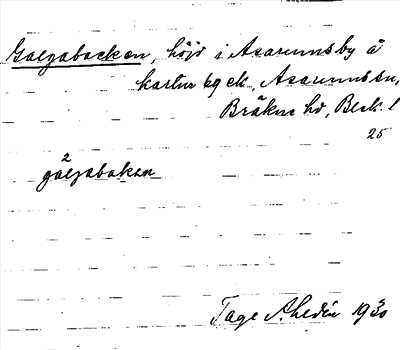 Galgabacken, höjd i Asarumsby å
kartur 69 ek., Asarums sn,
Bräkne hd, Blek. l
25
2
galjabakan
Tage Ahldén 1930